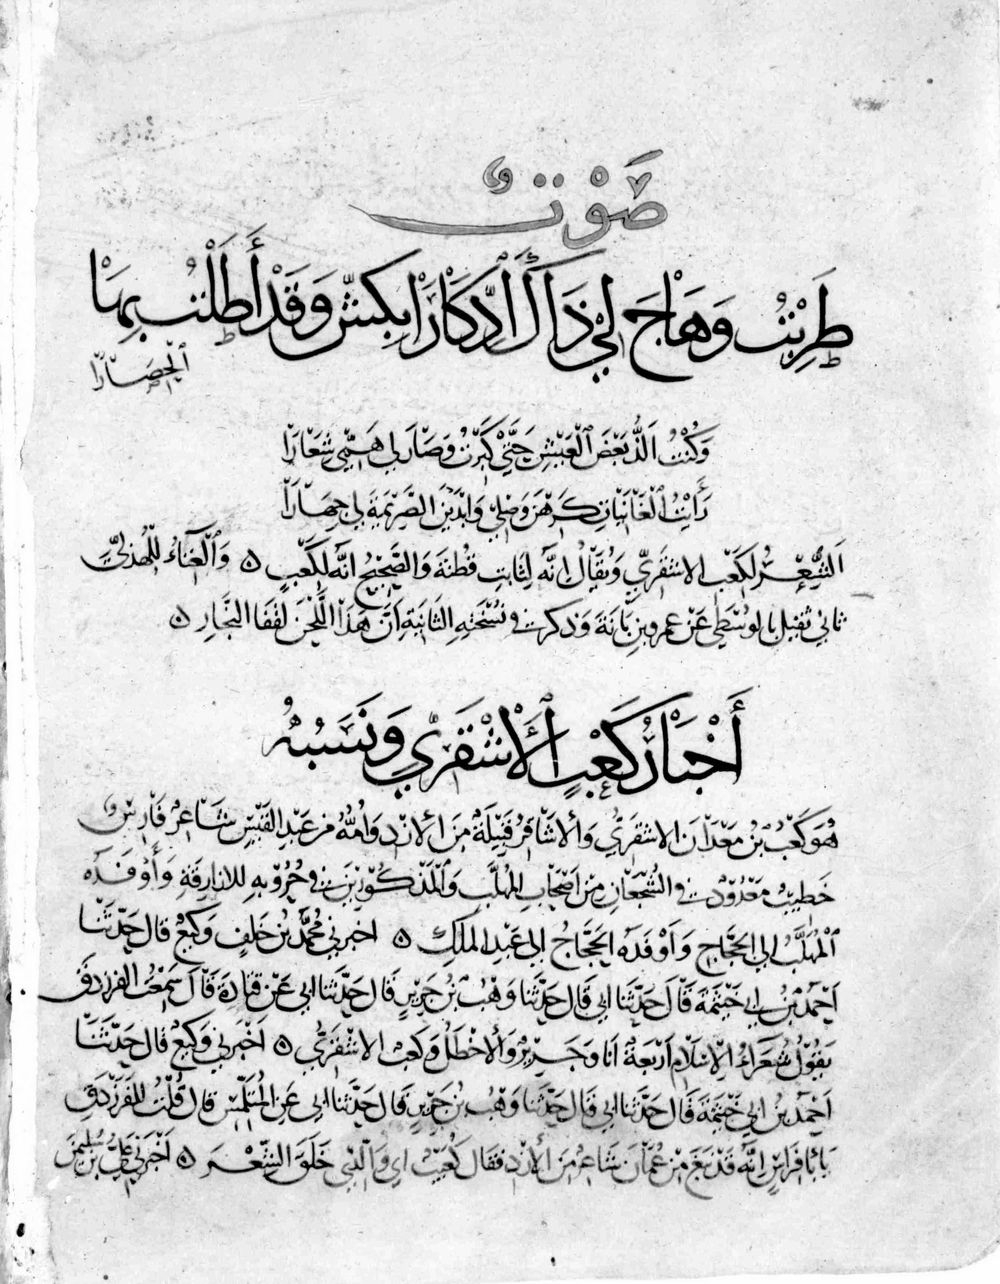 صَوْتٌ
طَرِبْتُ وَهَاجَ لِي ذَاكَ ادِّكَارَا بِكِشَّ وَقَدْ أَطَلْتُ بِهَا
الحِصَارَا
وَكُنْتُ أَلَذُّ بَعْضَ الْعَيْشِ حَتَّى كَبِرْتُ وَصَارَ لِي هَمِّي شِعَارَا
رَأَيْتُ الْغَانِيَاتِ كَرِهْنَ وَصْلِي وَأَبْدَيْنَ الصَّرِيمَةَ لِي جِهَارَا
الشِّعْرُ لِكَعْبٍ الاشقري وَيُقَالُ انَّهُ لِثَابِتِ قُطْنَةَ وَالصَّحِيحُ انَّهُ لِكَعْبٍ ٥ وَالْغِنَاءُ لِلْهُذَلِيِّ
ثاني ثقيل بالوُسْطَى عَنْ عمرو بنِ بَانَةَ وَذكر في نُسْخَتِهِ الثَّانِيَةِ أَنَّ هَذَا اللَّحْنَ لِقَفَا النَّجَارِ ٥
أَخْبَارُ كَعْبٍ الْأَشْقَرِي وَنَسَبُهُ
هُوَ كَعْبُ بْنُ مَعْدَانَ الاشقَرِيُّ وَالاشَاقِرُ قَبِيلَةٌ مِنَ الازْدِ وَامُّهُ مِنْ عَبْدِ القَيْسِ شَاعِرٌ فَارِسٌ
خَطِيبٌ مَعْدُودٌ في الشُّجْعَانِ مِنْ أَصْحَابِ المُهَلَّبِ وَالْمَذْكُورِينَ في حُرُوبِهِ للازارقَةِ وَأَوْفَدَهُ
الْمُهَلَّبُ الى الحَجَّاجِ وَأَوْفَدَهُ الحَجَّاجُ الى عَبْدِ المَلِكِ ٥ اخبرني مُحَمَّدُ بْنُ خَلَفٍ وَكِيعٌ قال حَدَّثَنَا
احْمَدُ بْنُ ابي خَيْثَمَةَ قَالَ حَدَّثَنَا ابي قَالَ حَدَّثَنَا وَهْبُ بْنُ جَرِيرٍ قَالَ حَدَّثَنَا ابي عَنْ قتَادَةَ قَالَ سَمِعْتُ الفرزدقَ
يَقُولُ شُعَرَاءُ الاسْلَامِ ارْبَعَةٌ انَا وَجَرِيرٌ وَالاخْطَلُ وَكَعْبٌ الاشْقَرِيُّ ٥ اخْبَرَنِي وَكِيعٌ قَالَ حَدَّثَنَا
احْمَدُ بن ابي خَيْثَمَةَ قَالَ حَدَّثَنَا ابي قَالَ حَدَّثَنَا وَهْبُ بْنُ جَرِيرٍ قَالَ حَدَّثَنَا ابي عَنِ المُتَلَمِّسِ قال قُلْتُ لِلْفَرَزْدَقِ
يَا بَا فِرَاسٍ انَّهُ قَدْ نَبَغَ مِنْ عُمَانَ شَاعِرٌ مِنَ الأَزْدِ فَقَالَ كَعْبٌ اي وَالَّذِي خَلَقَ الشِّعْرَ ٥ اخْبَرَنِي عَلِيُّ بْنُ سُلَيْمنَ